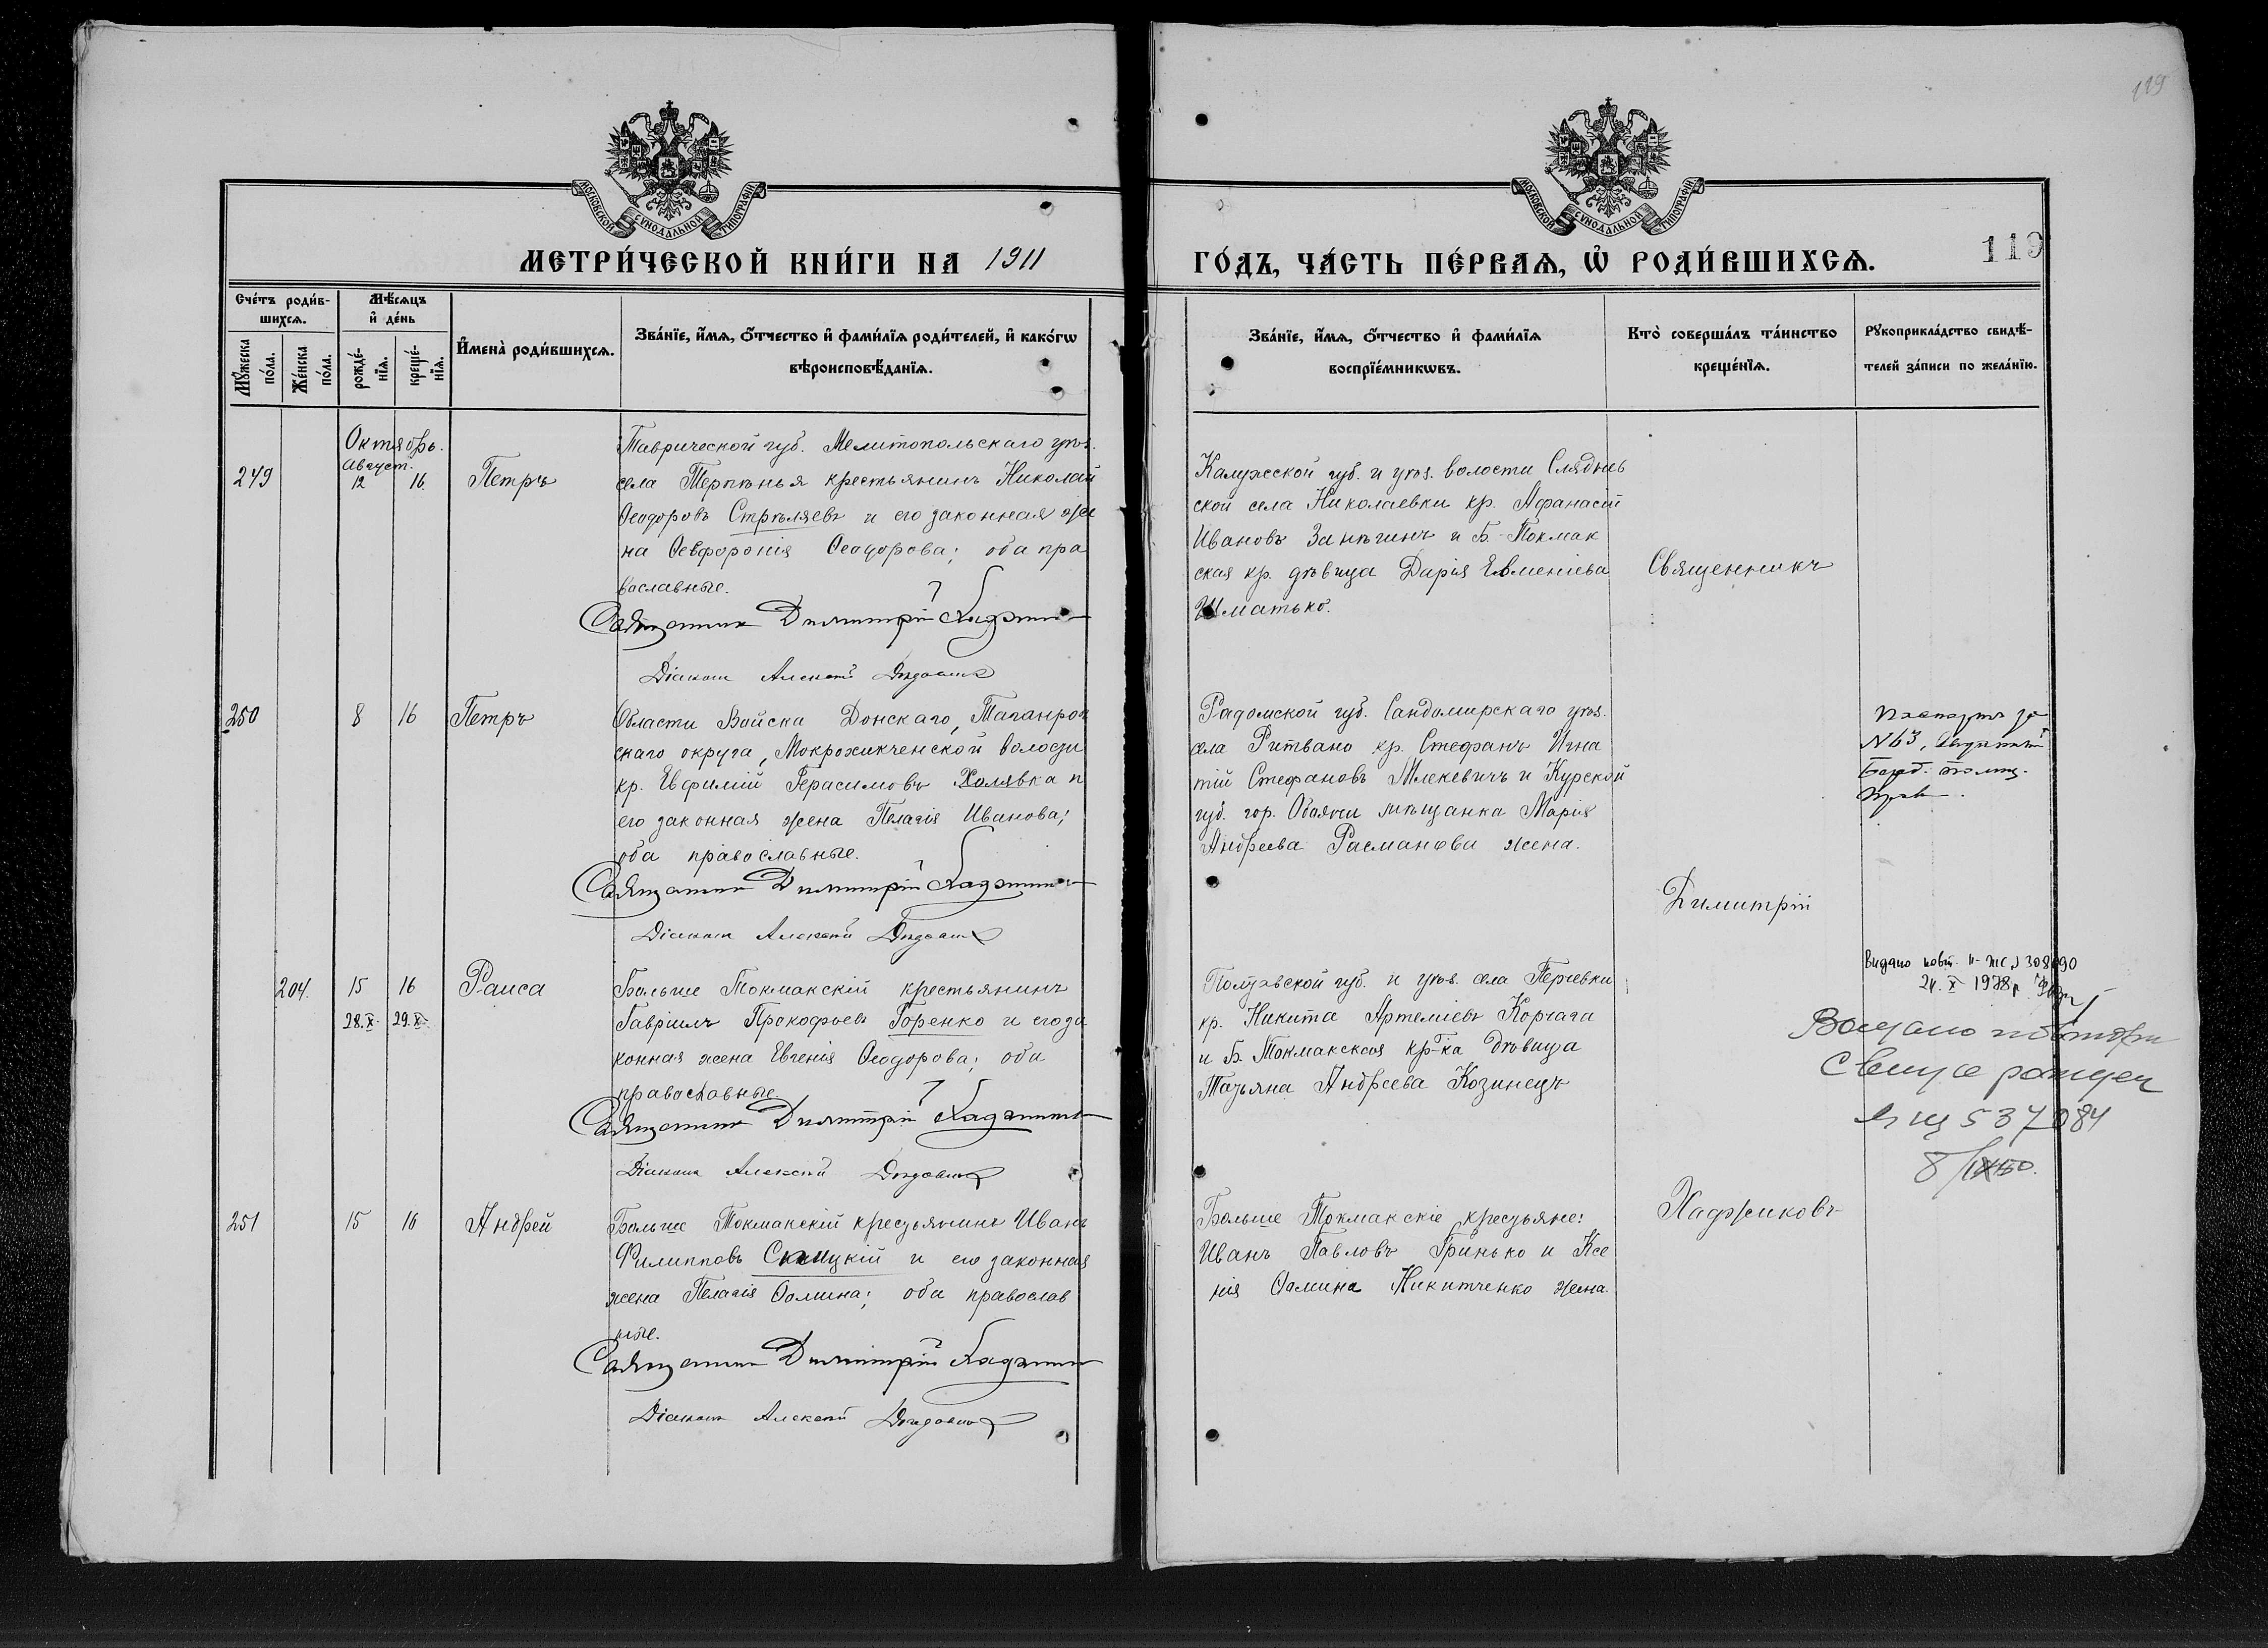 119
МОСКОВСКОЙ СѴНОДАЛЬНОЙ ТИПОГРАФІИ
МОСКОВСКОЙ СѴНОДАЛЬНОЙ ТИПОГРАФІИ
МЕТРИ́ЧЕСКОЙ КНИ́ГИ НА 1911
ГО́ДЪ, ЧА́СТЬ ПЕ́РВАѦ, Ѡ҆ РОДИ́ВШИХСѦ.
119
Сче́тъ роди́в-
шихсѧ.
Мꙋ́жеска
по́ла.
Же́нска
по́ла.
Мѣ́сѧцъ
и҆ де́нь
рожде́-
нїѧ.
креще́-
нїѧ.
И҆мена̀ роди́вшихсѧ.
Зва́нїе, и҆́мѧ, ѻ҆́тчество и҆ фами́лїѧ роди́телей, и҆ како́гѡ
вѣроисповѣ́данїѧ.
Зва́нїе, и҆́мѧ, ѻ҆́тчество и҆ фами́лїѧ
воспрїе́мникѡвъ.
Кто̀ соверша́лъ та́инство
креще́нїѧ.
Рꙋкоприкла́дство свидѣ́-
телей за́писи по жела́нїю.
Октябрь.
Август.
249
12
16
Петръ
Таврической губ. Мелитопольскаго уѣз.
села Терпѣнья крестьянинъ Николай
Ѳеодоровъ Стрѣляевъ и его законная же
на Ѳевфоронія Ѳеодорова; оба пра
вославные.
Священникъ Димитрій Хаджиковъ
Діаконъ Алексѣй
Калужской губ. и уѣз. волости Слядневь
ской села Николаевки кр. Аѳанасій
Ивановъ Занѣгинъ и Б-Токмак
ская кр. дѣвица Дарія Евменіева
Шматько.
Священникъ
250
8
16
Петръ
Области Войска Донскаго, Таганрог
скаго округа, Мокроеикченской волости
кр. Евфимій Герасимовъ Холявка и
его законная жена Пелагія Иванова;
оба православные.
Священникъ Димитрій Хаджиковъ
Діаконъ Алексѣй
Радомской губ. Сандомирскаго уѣз.
села Ритвано кр. Стефанъ Игна
тій Стефановъ Млекевичъ и Курской
губ. гор. Обаяни мѣщанка Марія
Андреева Расманова жена.
№ 63,
Димитрій
204.
15
16
28.X.
29.X.
Раиса
Больше Токмакскій крестьянинъ
Гавріилъ Прокофьевъ Горенко и его за
конная жена Евгенія Ѳеодорова; оба
православные.
Священникъ Димитрій Хаджиковъ
Діаконъ Алексѣй
Полтавской губ. и уѣз. села Перчевки
кр. Никита Артеміевъ Корчага
и Б. Токмакская кр-ка дѣвица
Татьяна Андреева Козинецъ
Видано повт. 308090
24. X 1978 р.
537084
251
15
16
Андрей
Больше Токмакскій крестьянинъ Иванъ
Филипповъ Скицкій и его законная
жена Пелагія Ѳомина; оба православ
ные.
Священникъ Димитрій Хаджиковъ
Діаконъ Алексѣй
Больше Токмакскіе крестьяне:
Иванъ Павловъ Гринько и Ксе
нія Ѳомина Никитченко жена.
Хаджиковъ